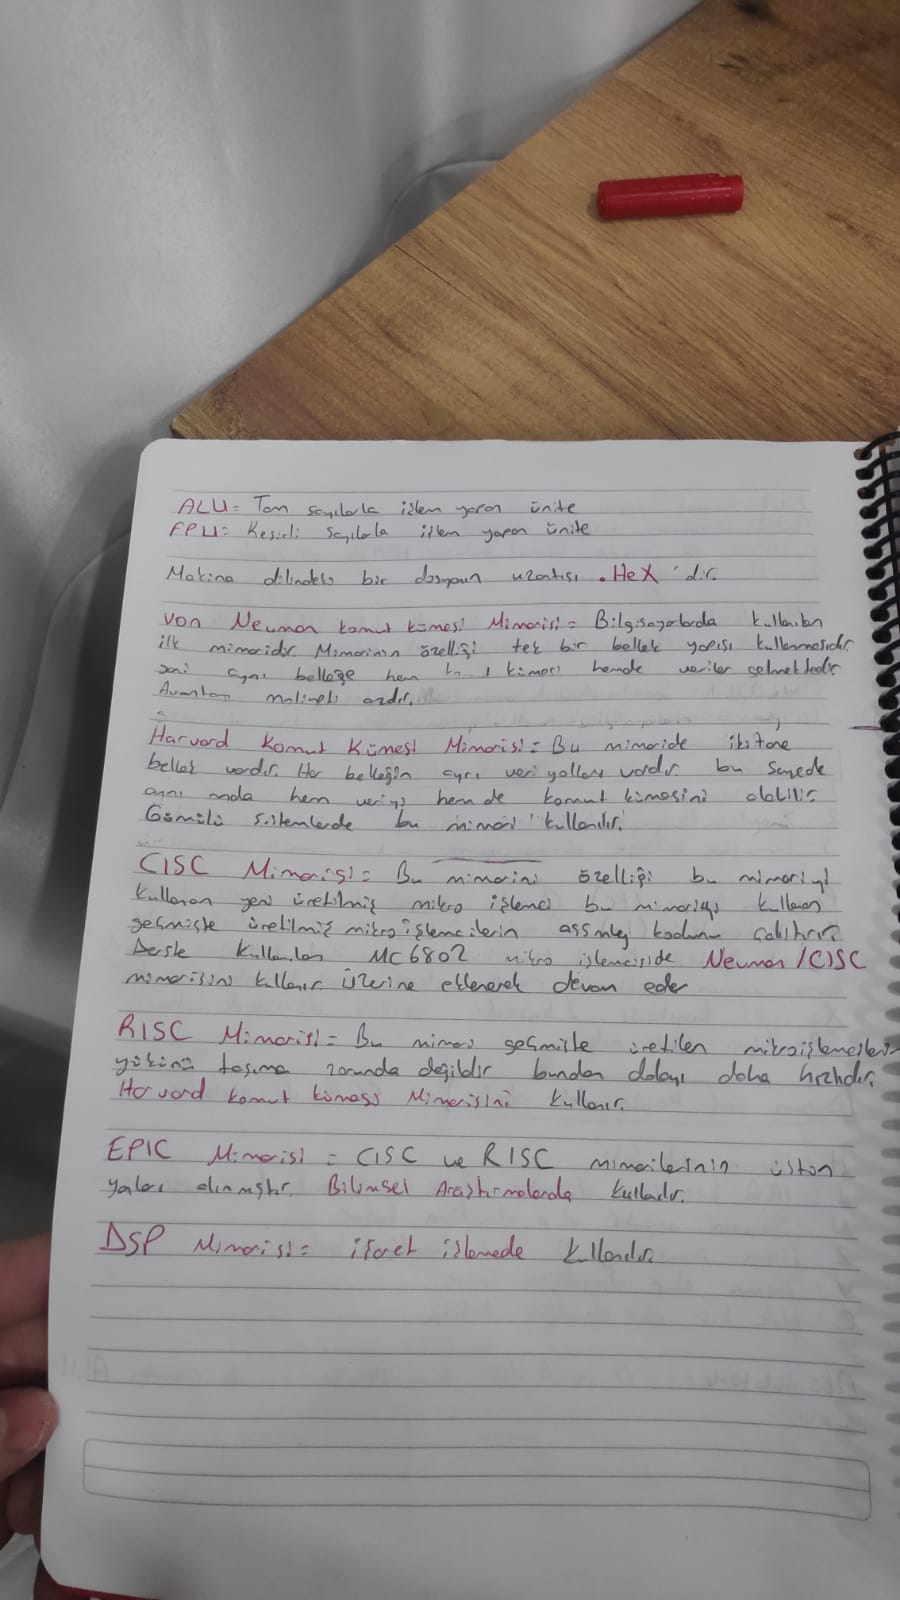 ALU= Tam sayılarla işlem yapan ünite
FPU= Kesirli sayılarla işlem yapan ünite
Makina dilindeki bir dosyanın uzantısı .HeX 'dir.
Von Neuman komut kümesi Mimarisi= Bilgisayarlarda kullanılan
ilk mimaridir. Mimarinin özelliği tek bir bellek yapısı kullanmasıdır.
yani aynı belleğe hem kümesi hemde veriler gelmektedir.
Avantajı maliyeti azdır.
Harvard Komut Kümesi Mimarisi= Bu mimaride iki tane
bellek vardır. Her belleğin ayrı veri yolları vardır. bu sayede
aynı anda hem veriyi hem de komut kümesini alabilir.
Gömülü sistemlerde bu mimari kullanılır.
CISC Mimarisi= Bu mimarini özelliği bu mimariyi
kullanan yeni üretilmiş mikro işlemci bu mimariyi kullanan
geçmişte üretilmiş mikroişlemcilerin kodunu çalıştırır.
Derste Kullanılan MC6802 mikro işlemciside Neuman/CISC
mimarisini kullanır. Üzerine eklenerek devam eder
RISC Mimarisi= Bu mimari geçmişte üretilen
yükünü taşıma zorunda değildir bundan dolayı daha hızlıdır.
Harvard komut kümesi Mimarisini kullanır.
EPIC Mimarisi = CISC ve RISC mimarilerinin üstün
yanları alınmıştır. Bilimsel Araştırmalarda
DSP Mimarisi= işaret işlemede kullanılır.